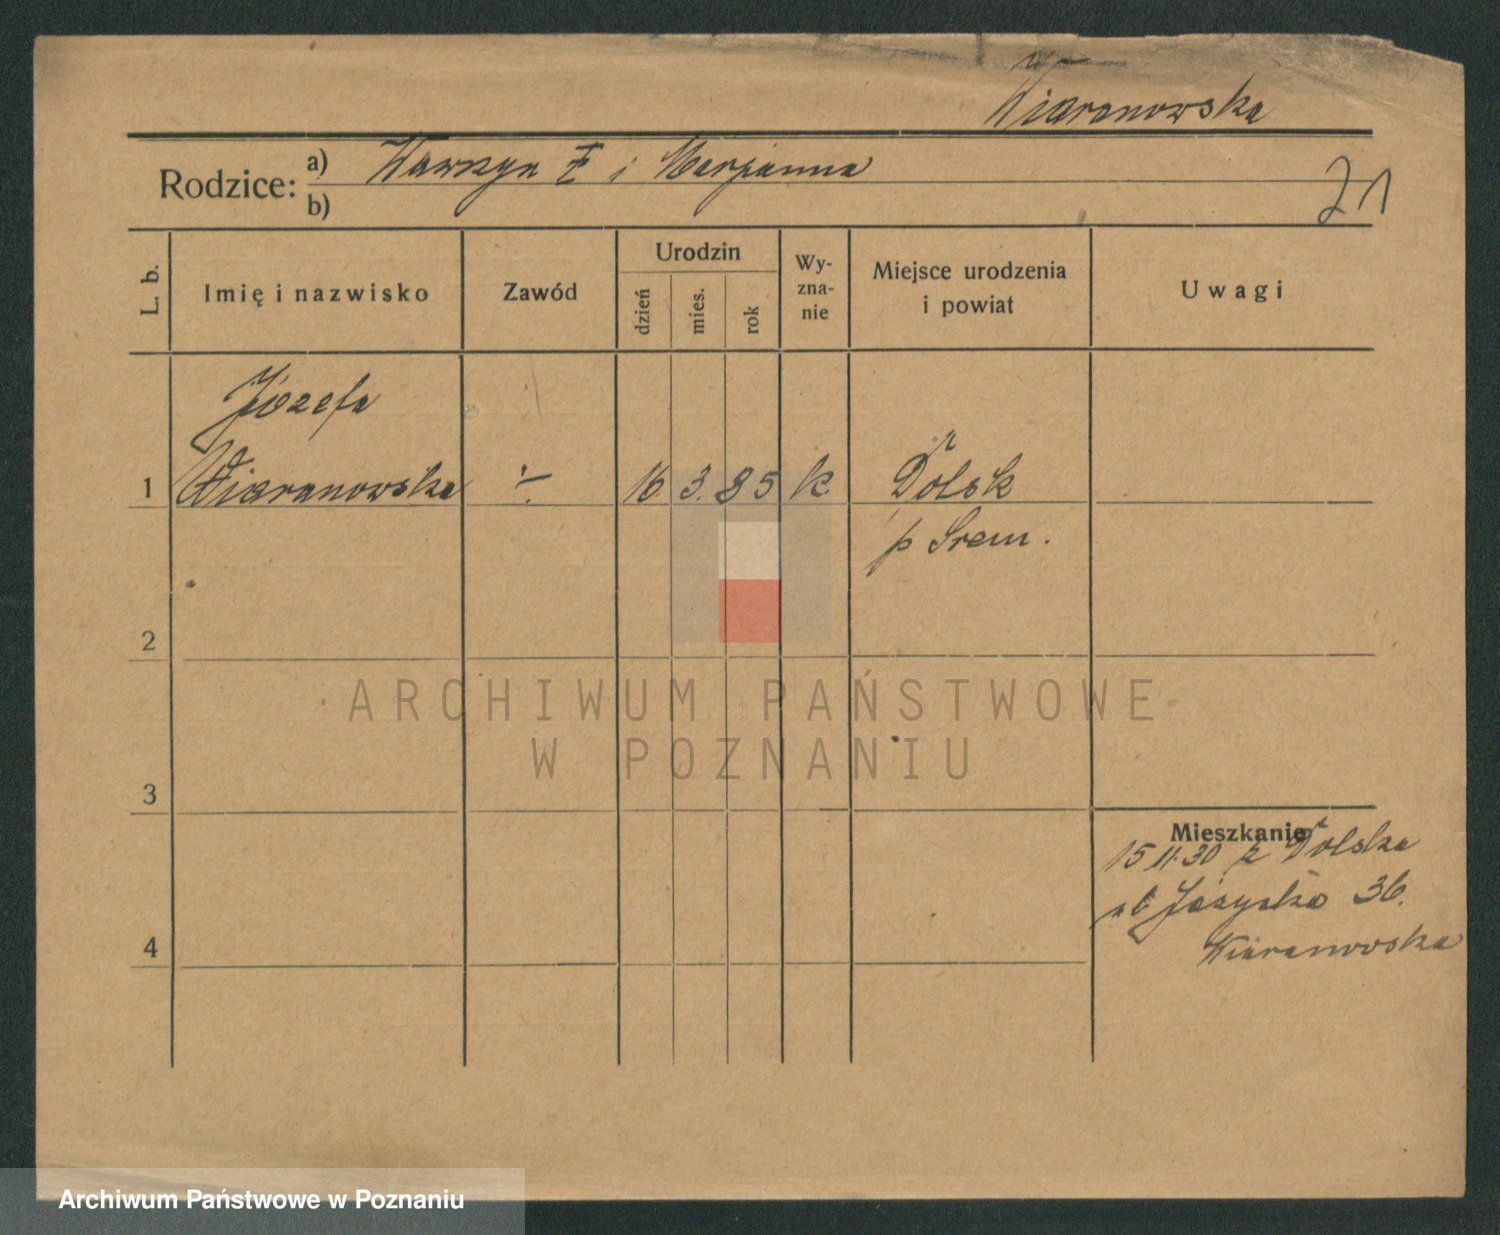 Wiaranowska
Rodzice: a) Wawrzyn i Marjanna
b)
71
L. b.
Imię i nazwisko
Zawód
Urodzin
dzień
mies.
rok
Wy-
zna-
nie
Miejsce urodzenia
i powiat
Uwagi
Józefa
1 Wiaranowska ÷ 16 3. 85 k. Dolsk
p Srem.
2
ARCHIWUM PAŃSTWOWE
W POZNANIU
3
Mieszkanie
15 11.30 z Dolska
36.
4
Wiaranowska
Archiwum Państwowe w Poznaniu